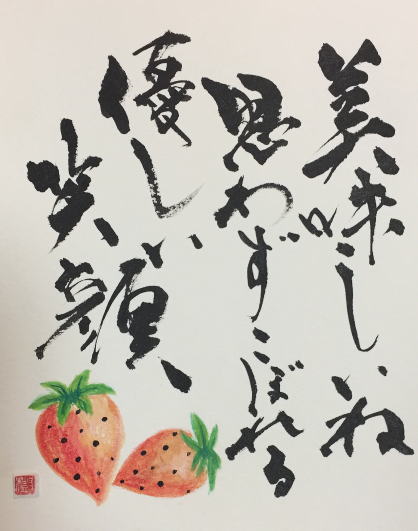 美味しいね
思わずこぼれる
優しい
笑顔